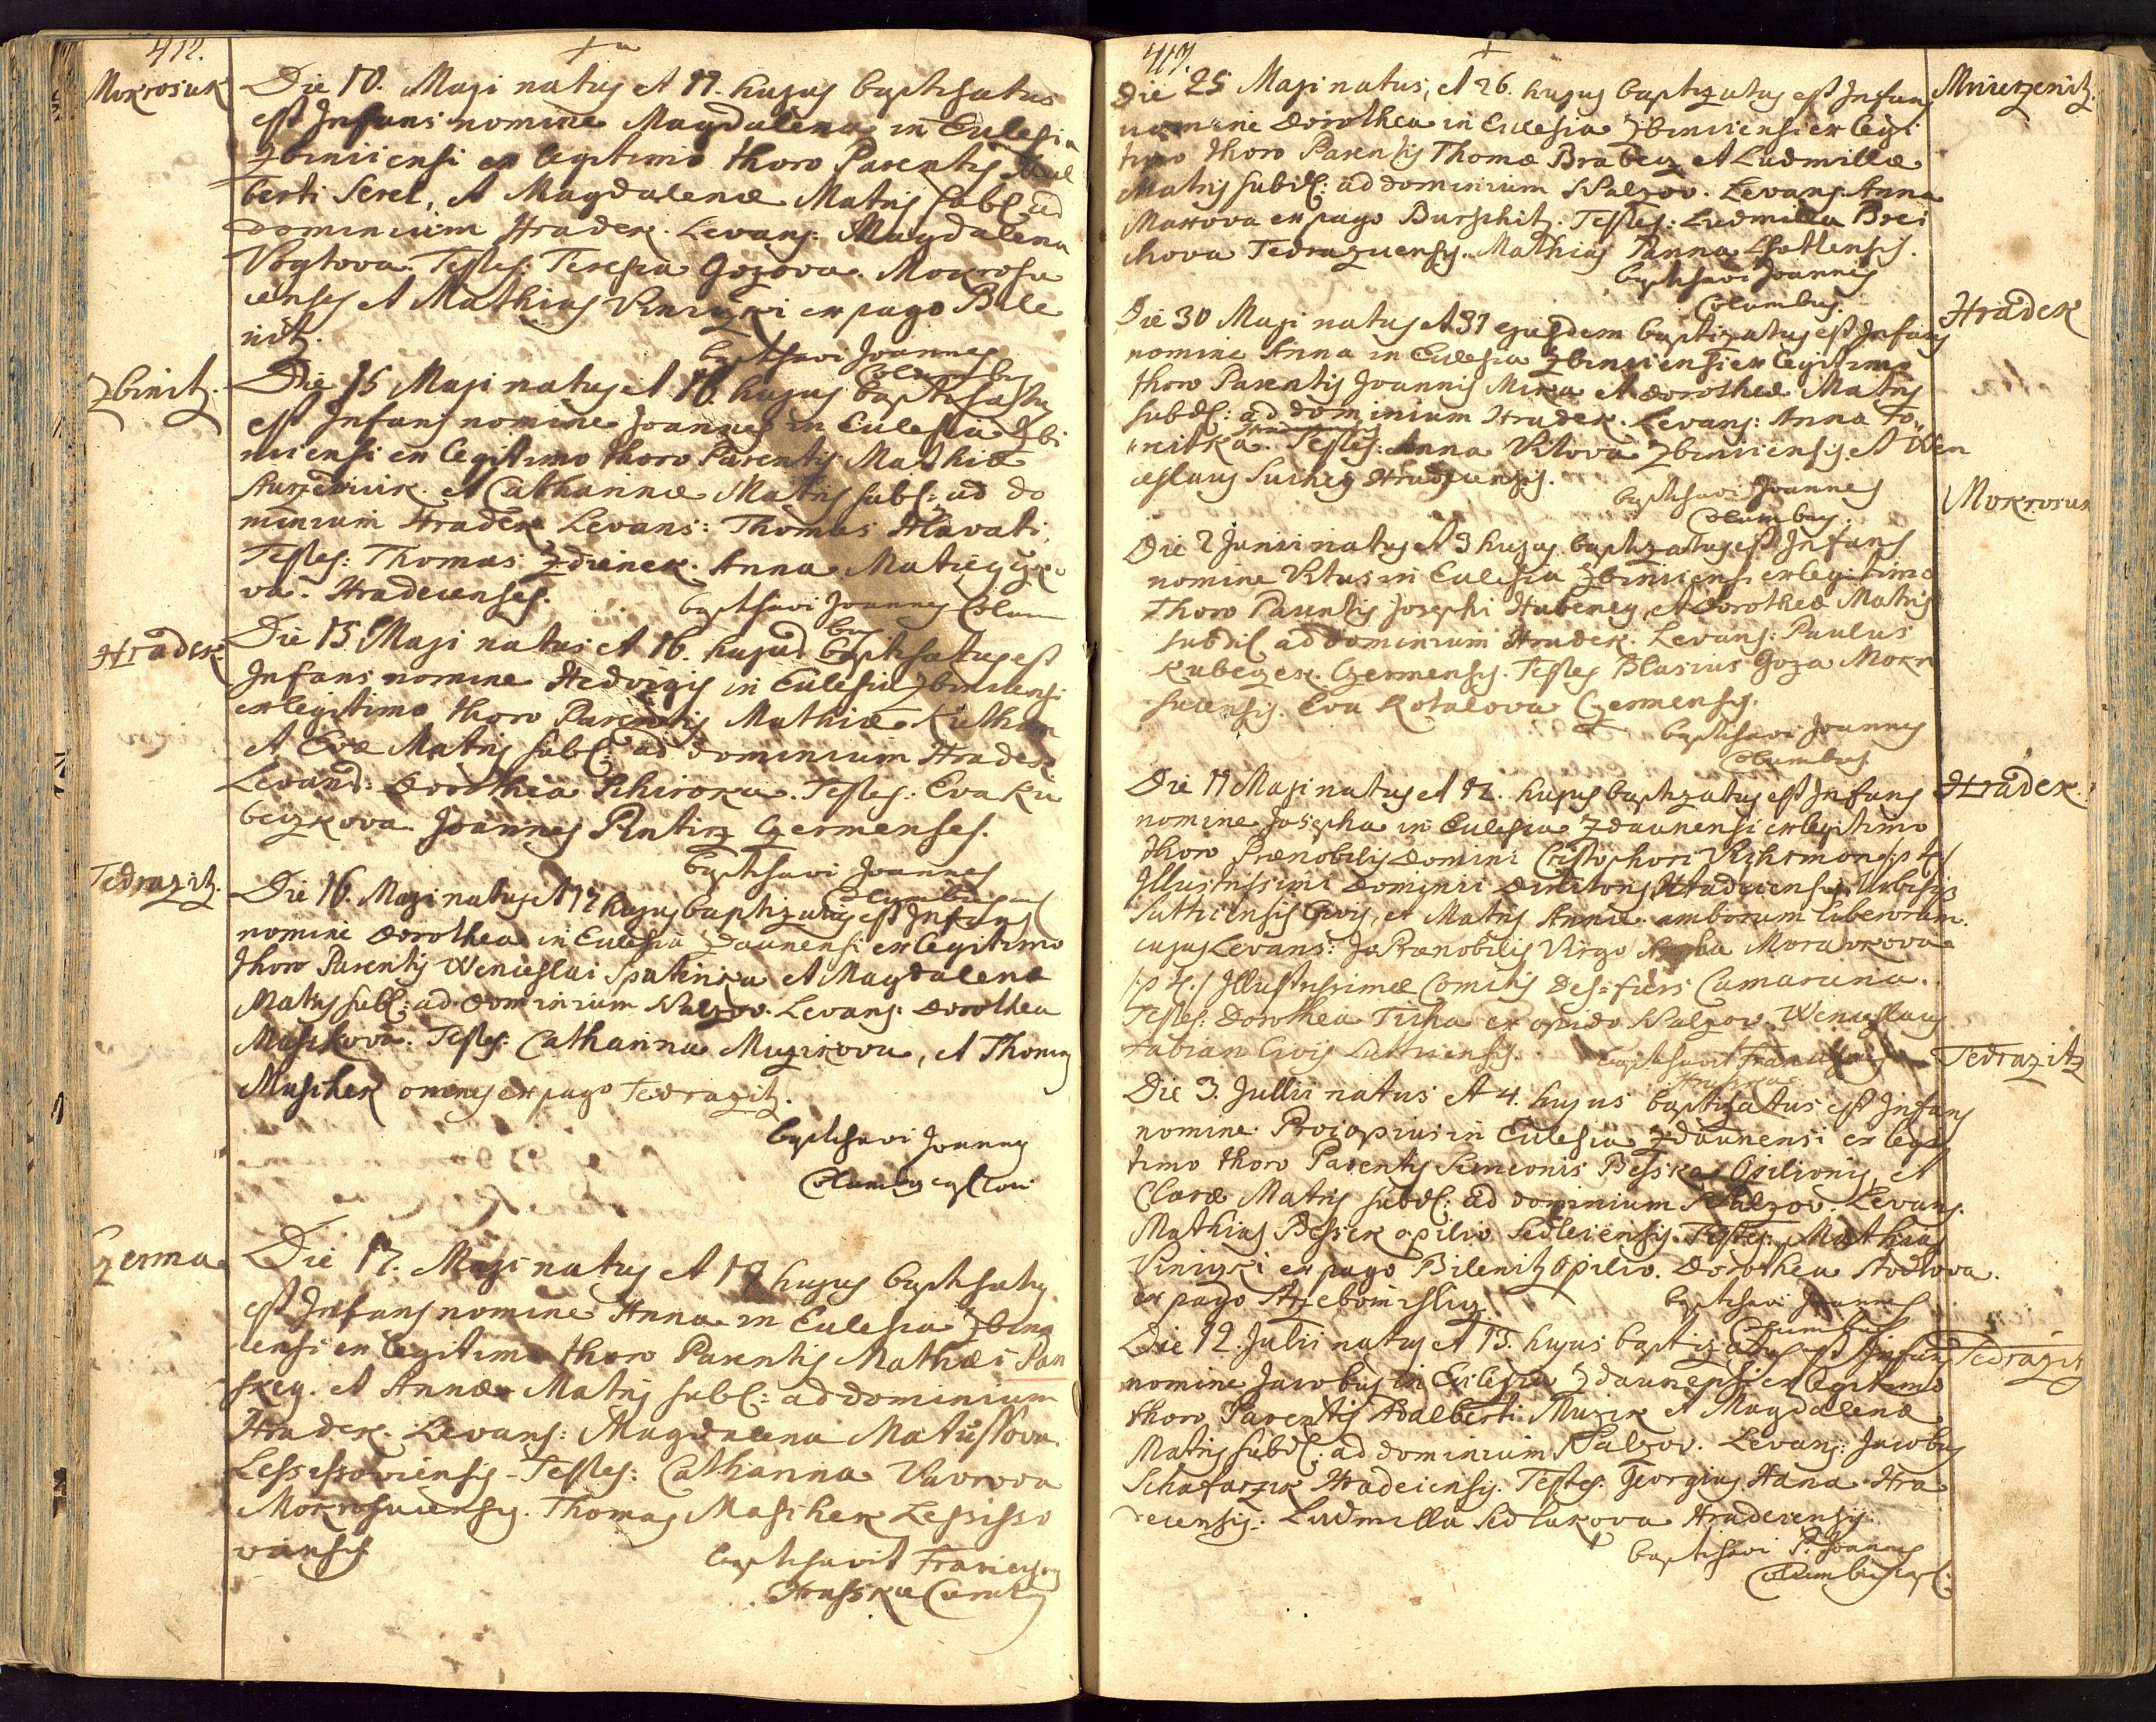 412.
Mokrosuk
Die 10. Maji natus et 11. hujus baptisatus
est Infans nomine Magdalena in Eulesia
Zbiniiensi ex legitimo thoro Parentis Adal
berti Serel, et Magdalenæ Matris subd: ad
dominium Hradek. Levans: Magdalena
Voytova. Testes: Teresia Gozova. Mokrosu
censes et Mathias Viniczki ex pago Bile
nitz.
baptisavi Joannes
Columbus
Zbinitz.
Die 15 Maji natus et 16. hujus baptisatus
est Infans nomine Joannes in Eulesia Zbi
niiensi ex legitimo thoro Parentis Mathiæ
et Catharinæ Matris subd: ad do
minium Hradek Levans: Thomas Hlavati.
Testes: Thomas Zdienek. Anna Matiegczko
va. Hradecenses.
baptisavi Joannes Colum
bus
Hradek.
Die 15. Maji natus et 16. hujus baptisatus est
Infans nomine Hedvigis in Eulesia Zbiniiensi
ex legitimo thoro Parentis Mathiæ
et Evæ Matris subd: ad dominium Hradek
Levans: Dorothea Schiroka. Testes: Eva Ku
beczkova. Joannes Czermenses.
baptisavi Joannes
Columbus
Tedrazitz.
Die 16. Maji natus et 17 hujus baptizatus est Infans
nomine Dorothea in Eulesia Zdaunensi ex legitimo
thoro Parentis Wenceslai Spatenka et Magdalenæ
Matris subd: ad dominium Walzov. Levans: Dorothea
Maschkova. Testes: Catharina Muzikova, et Thomas
Maschek omnes ex pago Tedrazitz.
baptisavi Joannes
Columbus
Czerma
Die 17. Maji natus et 19 hujus baptisatus
est Infans nomine Anna in Eulesia Zbini
censi ex legitimo thoro Parentis Mathæi Pan
skey. et Annæ Matris subd: ad dominium
Hradek. Levans: Magdalena Matussova
Lessissoviensis. Testes: Catharina Vavrova
Mokrosucensis. Thomas Maschek Lessisso
viensis
baptisavit Franciscus
Hrusska
413.
Mniczenitz.
Die 25 Maji natus, et 26. hujus baptizatus est Infans
nomine Dorothea in Eulesia Zbiniiensi ex legi
timo thoro Parentis Thomæ Brabecz et Ludmillæ
Matris subd: ad dominium Walzov. Levans. Anna
Makova ex pago Burschitz. Testes: Ludmilla Brei
chova Tedrazicensis. Mathias Panna
baptisavi Joannes
Columbus.
Hradek
Die 30 Maji natus et 31 ejusdem baptizatus est Infans
nomine Anna in Eulesia Zbiniiensi ex legitimo
thoro Parentis Joannis Mika et Dorotheæ Matris
subd: ad dominium Hradek. Levans: Anna To-
nitka. Testes: Anna Vitova Zbiniiensis. et Wen
ceslaus Suchey Hradecensis.
baptisavi Joannes
Columbus.
Mokrosuk
Die 2 Junii natus et 3 hujus baptizatus est Infans
nomine Vitus in Eulesia Zbiniiensi ex legitimo
thoro Parentis Josephi Hubeney et Dorotheæ Matris
subd ad dominium Hradek. Levans: Paulus
Kubeczek. Czermensis. Testes Blasius Goza Mokro
sucensis. Eva Kotalova Czermensis.
baptisavi Joannes
Columbus
Hradek.
Die 11 Maji natus et 12. hujus baptizatus est Infans
nomine Josepha in Eulesia Zdaunensi ex legitimo
thoro Prænobilis Domini Cristophori
Illustrissimi Domini Hradecensis. Urbisq
Sutticensis Civis, et Matris Annæ amborum liberorum.
cujus Levans: Prænobilis Virgo Morawkova
Illustrissimæ Comitis Des-fürs Camarina.
Testes: Dorothea Ticha ex opido Walzov. Wenceslaus
Fabian Civis Suttiensis.
baptisavit Franciscus
Hrusska
Tedrazitz
Die 3. Jullii natus et 4. hujus baptizatus est Infans
nomine Procopius in Eulesia Zdaunensi ex legi
timo thoro Parentis Simeonis Besska Opilionis, et
Claræ Matris subd: ad dominium Walzov. Levans.
Mathias Bessek opilio Sedleiensis. Testes: Mathias
Viniczki ex pago Bilenitz opilio. Dorothea Stodlova.
ex pago
baptisavi Joannes
Columbus
Tedrazitz
Die 12. Julii natus et 13. hujus baptizatus est Infans
nomine Jacobus in Eulesia Zdaunensi ex legitimo
thoro Parentis Adalberti Muzik et Magdalenæ
Matris subd: ad dominium Walzov. Levans: Jacobus
Schafarzik Hradecensis. Testes: Georgius Hana Hra
decensis: Ludmilla Sedlakova Hradecensis.
baptisavi P. Joannes
Columbus